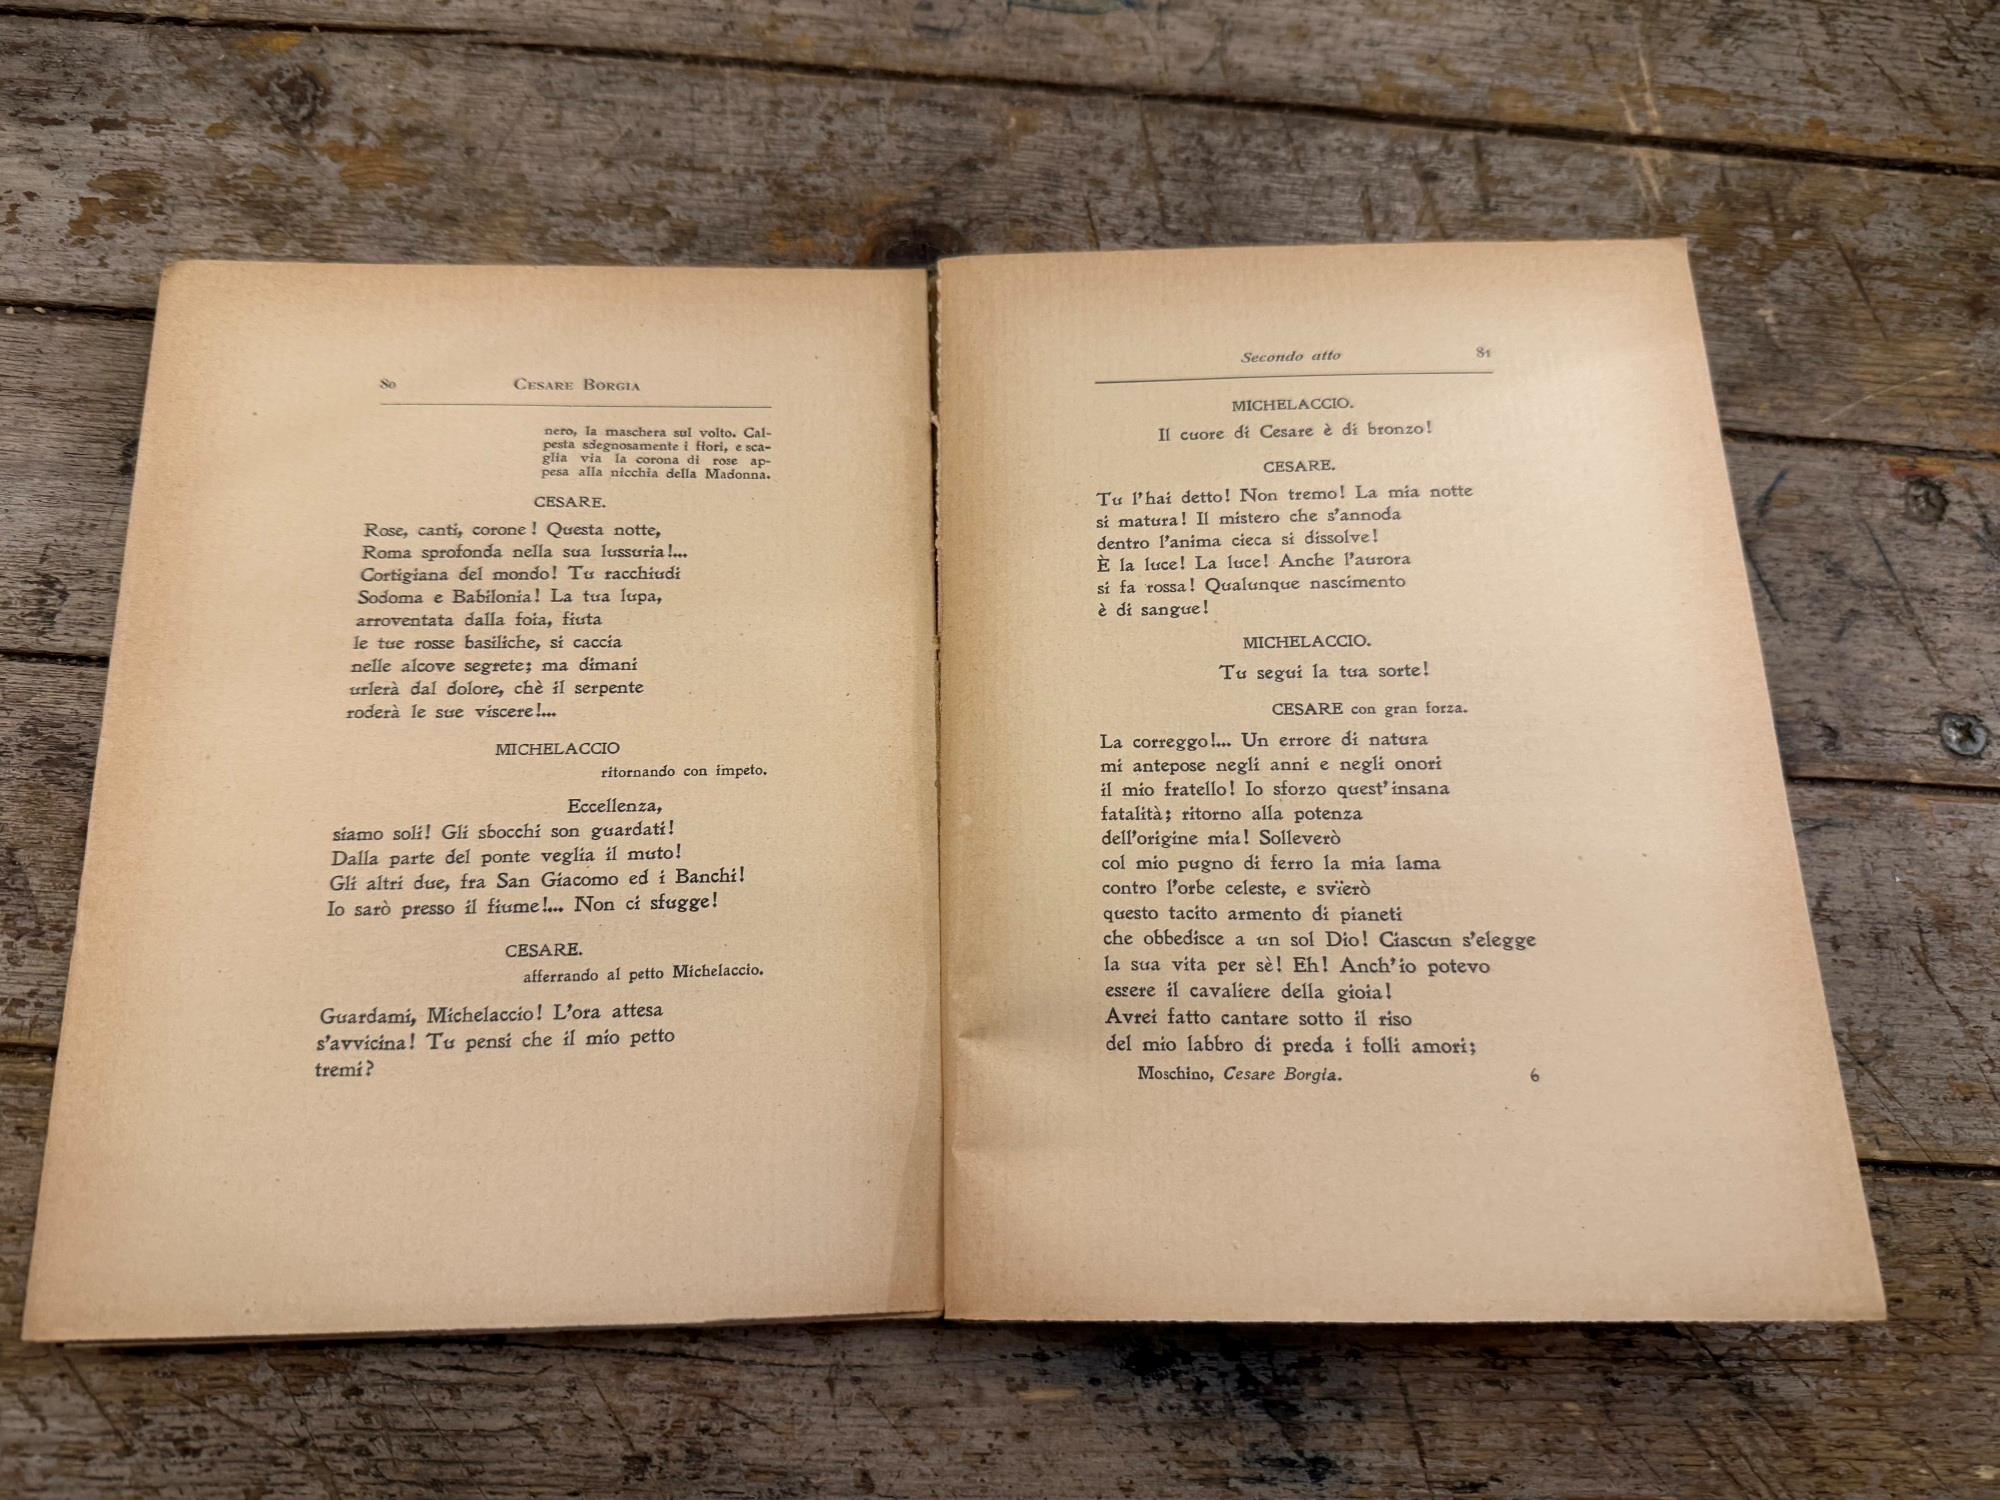 80 CESARE BORGIA
nero, la maschera sul volto. Cal-
pesta sdegnosamente i fiori, e sca-
glia via la corona di rose ap-
pesa alla nicchia della Madonna.
CESARE.
Rose, canti, corone! Questa notte,
Roma sprofonda nella sua lussuria!...
Cortigiana del mondo! Tu racchiudi
Sodoma e Babilonia! La tua lupa,
arroventata dalla foia, fiuta
le tue rosse basiliche, si caccia
nelle alcove segrete; ma dimani
urlerà dal dolore, chè il serpente
roderà le sue viscere!...
MICHELACCIO
ritornando con impeto.
Eccellenza,
siamo soli! Gli sbocchi son guardati!
Dalla parte del ponte veglia il muto!
Gli altri due, fra San Giacomo ed i Banchi!
Io sarò presso il fiume!... Non ci sfugge!
CESARE.
afferrando al petto Michelaccio.
Guardami, Michelaccio! L'ora attesa
s'avvicina! Tu pensi che il mio petto
tremi?
Secondo atto 81
MICHELACCIO.
Il cuore di Cesare è di bronzo!
CESARE.
Tu l'hai detto! Non tremo! La mia notte
si matura! Il mistero che s'annoda
dentro l'anima cieca si dissolve!
È la luce! La luce! Anche l'aurora
si fa rossa! Qualunque nascimento
è di sangue!
MICHELACCIO.
Tu segui la tua sorte!
CESARE con gran forza.
La correggo!... Un errore di natura
mi antepose negli anni e negli onori
il mio fratello! Io sforzo quest'insana
fatalità; ritorno alla potenza
dell'origine mia! Solleverò
col mio pugno di ferro la mia lama
contro l'orbe celeste, e svïerò
questo tacito armento di pianeti
che obbedisce a un sol Dio! Ciascun s'elegge
la sua vita per sè! Eh! Anch'io potevo
essere il cavaliere della gioia!
Avrei fatto cantare sotto il riso
del mio labbro di preda i folli amori;
Moschino, Cesare Borgia. 6